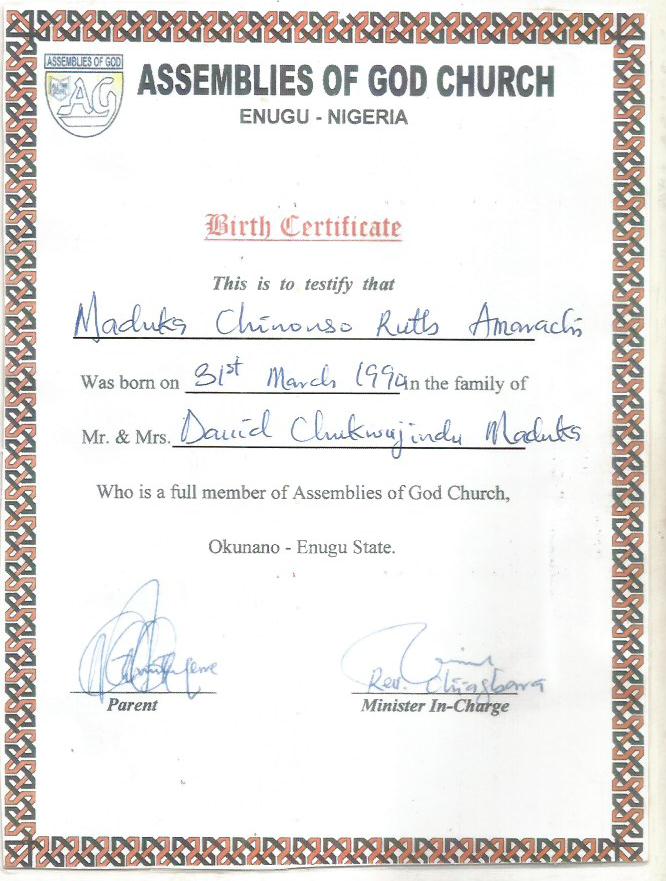 ASSEMBLIES OF GOD
AG
ASSEMBLIES OF GOD CHURCH
ENUGU - NIGERIA
Birth Certificate
This is to testify that
Maduka Chinonso Ruth Amarachi
Was born on 31st March 1990 in the family of
Mr. & Mrs. David Chukwujindu Maduka
Who is a full member of Assemblies of God Church,
Okunano - Enugu State.
Rev.
Parent
Minister In-Charge